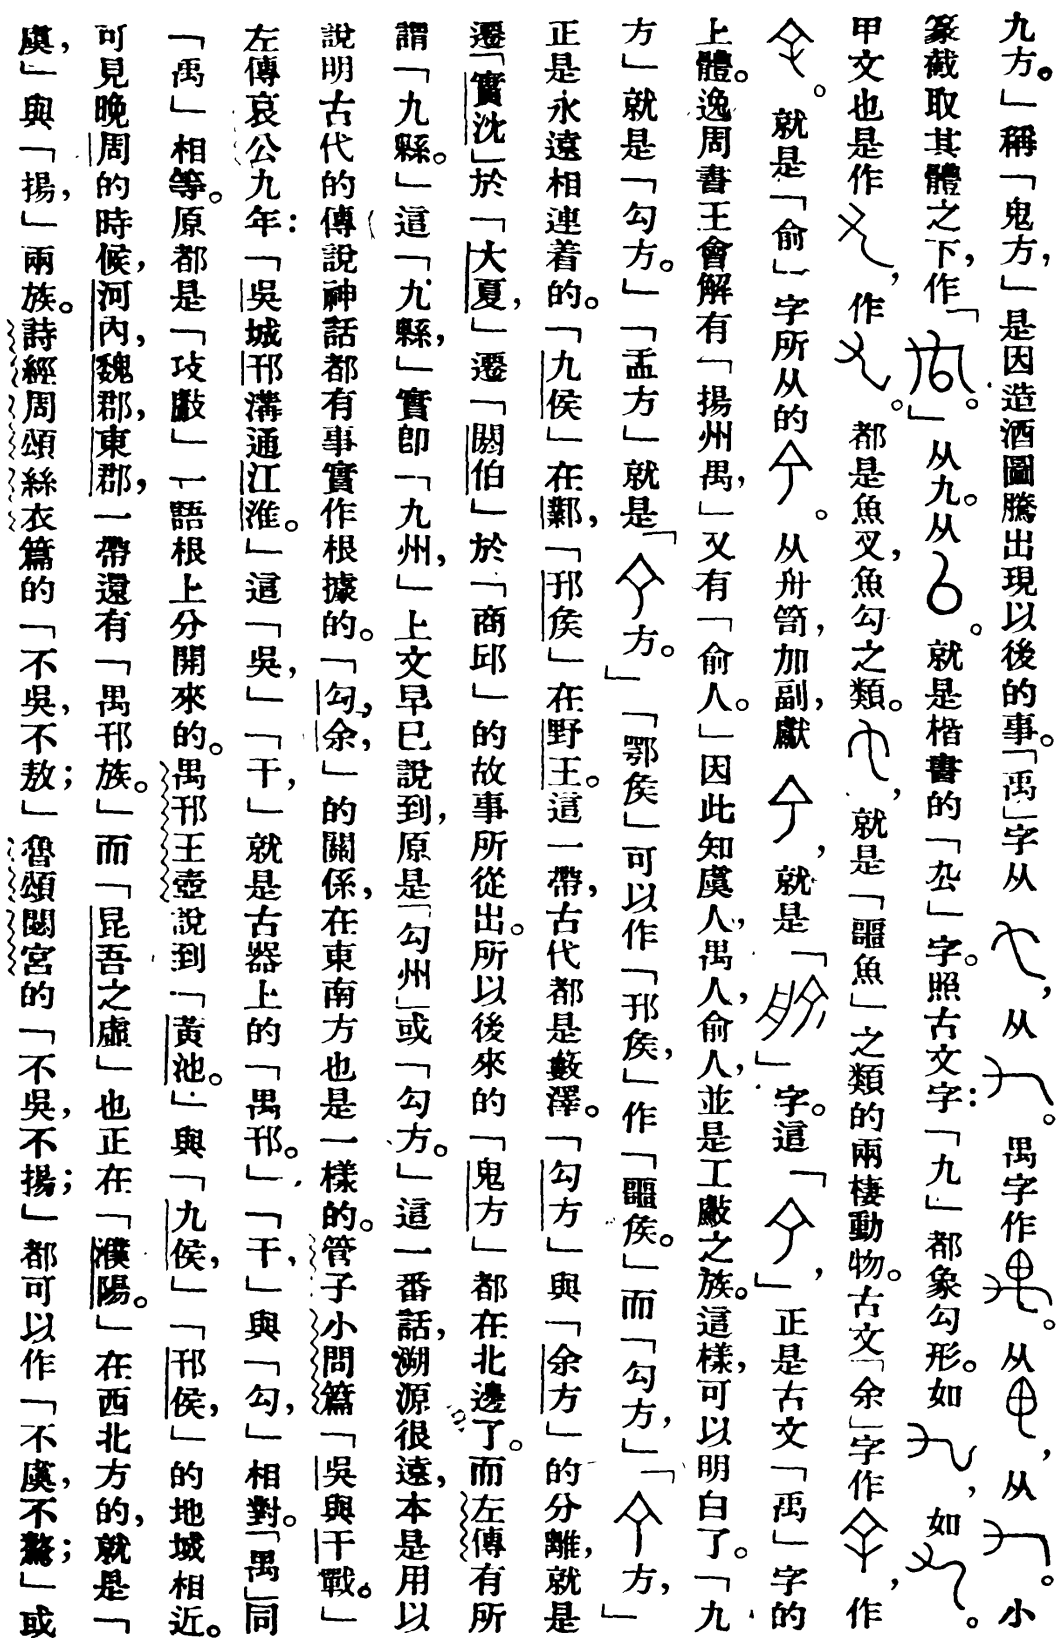 九方。」稱「鬼方，」是因造酒圖騰出現以後的事。「禹」字从，从。禺字作。从，从。小
篆截取其體之下，作「。」从九。从。就是楷書的「厹」字。照古文字：「九」都象勾形。如，如。
甲文也是作，作。都是魚叉，魚勾之類。，就是「噩魚」之類的兩棲動物。古文「余」字作，作
。就是「俞」字所从的。从舟笥，加副，獻，就是「」字。這「」，正是古文「禹」字的
上體。逸周書王會解有「揚州禺，」又有「俞人。」因此知虞人，禺人，俞人，並是工𢾅之族。這樣，可以明白了。「九
方」就是「勾方。」「盂方」就是「方。」「鄂矦」可以作「邘矦，」作「噩矦。」而「勾方，」「方，」
正是永遠相連着的。「九侯」在鄴，「邘矦」在野王。這一帶，古代都是藪澤。「勾方」與「余方」的分離，就是
遷「實沈」於「大夏，」遷「閼伯」於「商邱」的故事所從出。所以後來的「鬼方」都在北邊了。而左傳有所
謂「九縣。」這「九縣，」實卽「九州，」上文早已說到，原是「勾州」或「勾方。」這一番話，溯源很遠，本是用以
說明古代的傳說神話都有事實作根據的。「勾，余，」的關係，在東南方也是一樣的。管子小問篇「吳與干戰。」
左傳哀公九年：「吳城邗溝通江淮。」這「吳，」「干，」就是古器上的「禺邗。」「干，」與「勾，」相對。「禺」同
「禹」相等。原都是「攻𢾅」一語根上分開來的。禺邗王壺說到「黃池。」與「九侯，」「邘侯，」的地域相近。
可見晚周的時候，河內，魏郡，東郡，一帶還有「禺邗族。」而「昆吾之虛」也正在「濮陽。」在西北方的，就是「
虞，」與「揚，」兩族。詩經周頌絲衣篇的「不吳，不敖；」魯頌閟宮的「不吳，不揚；」都可以作「不虞，不驁；」或